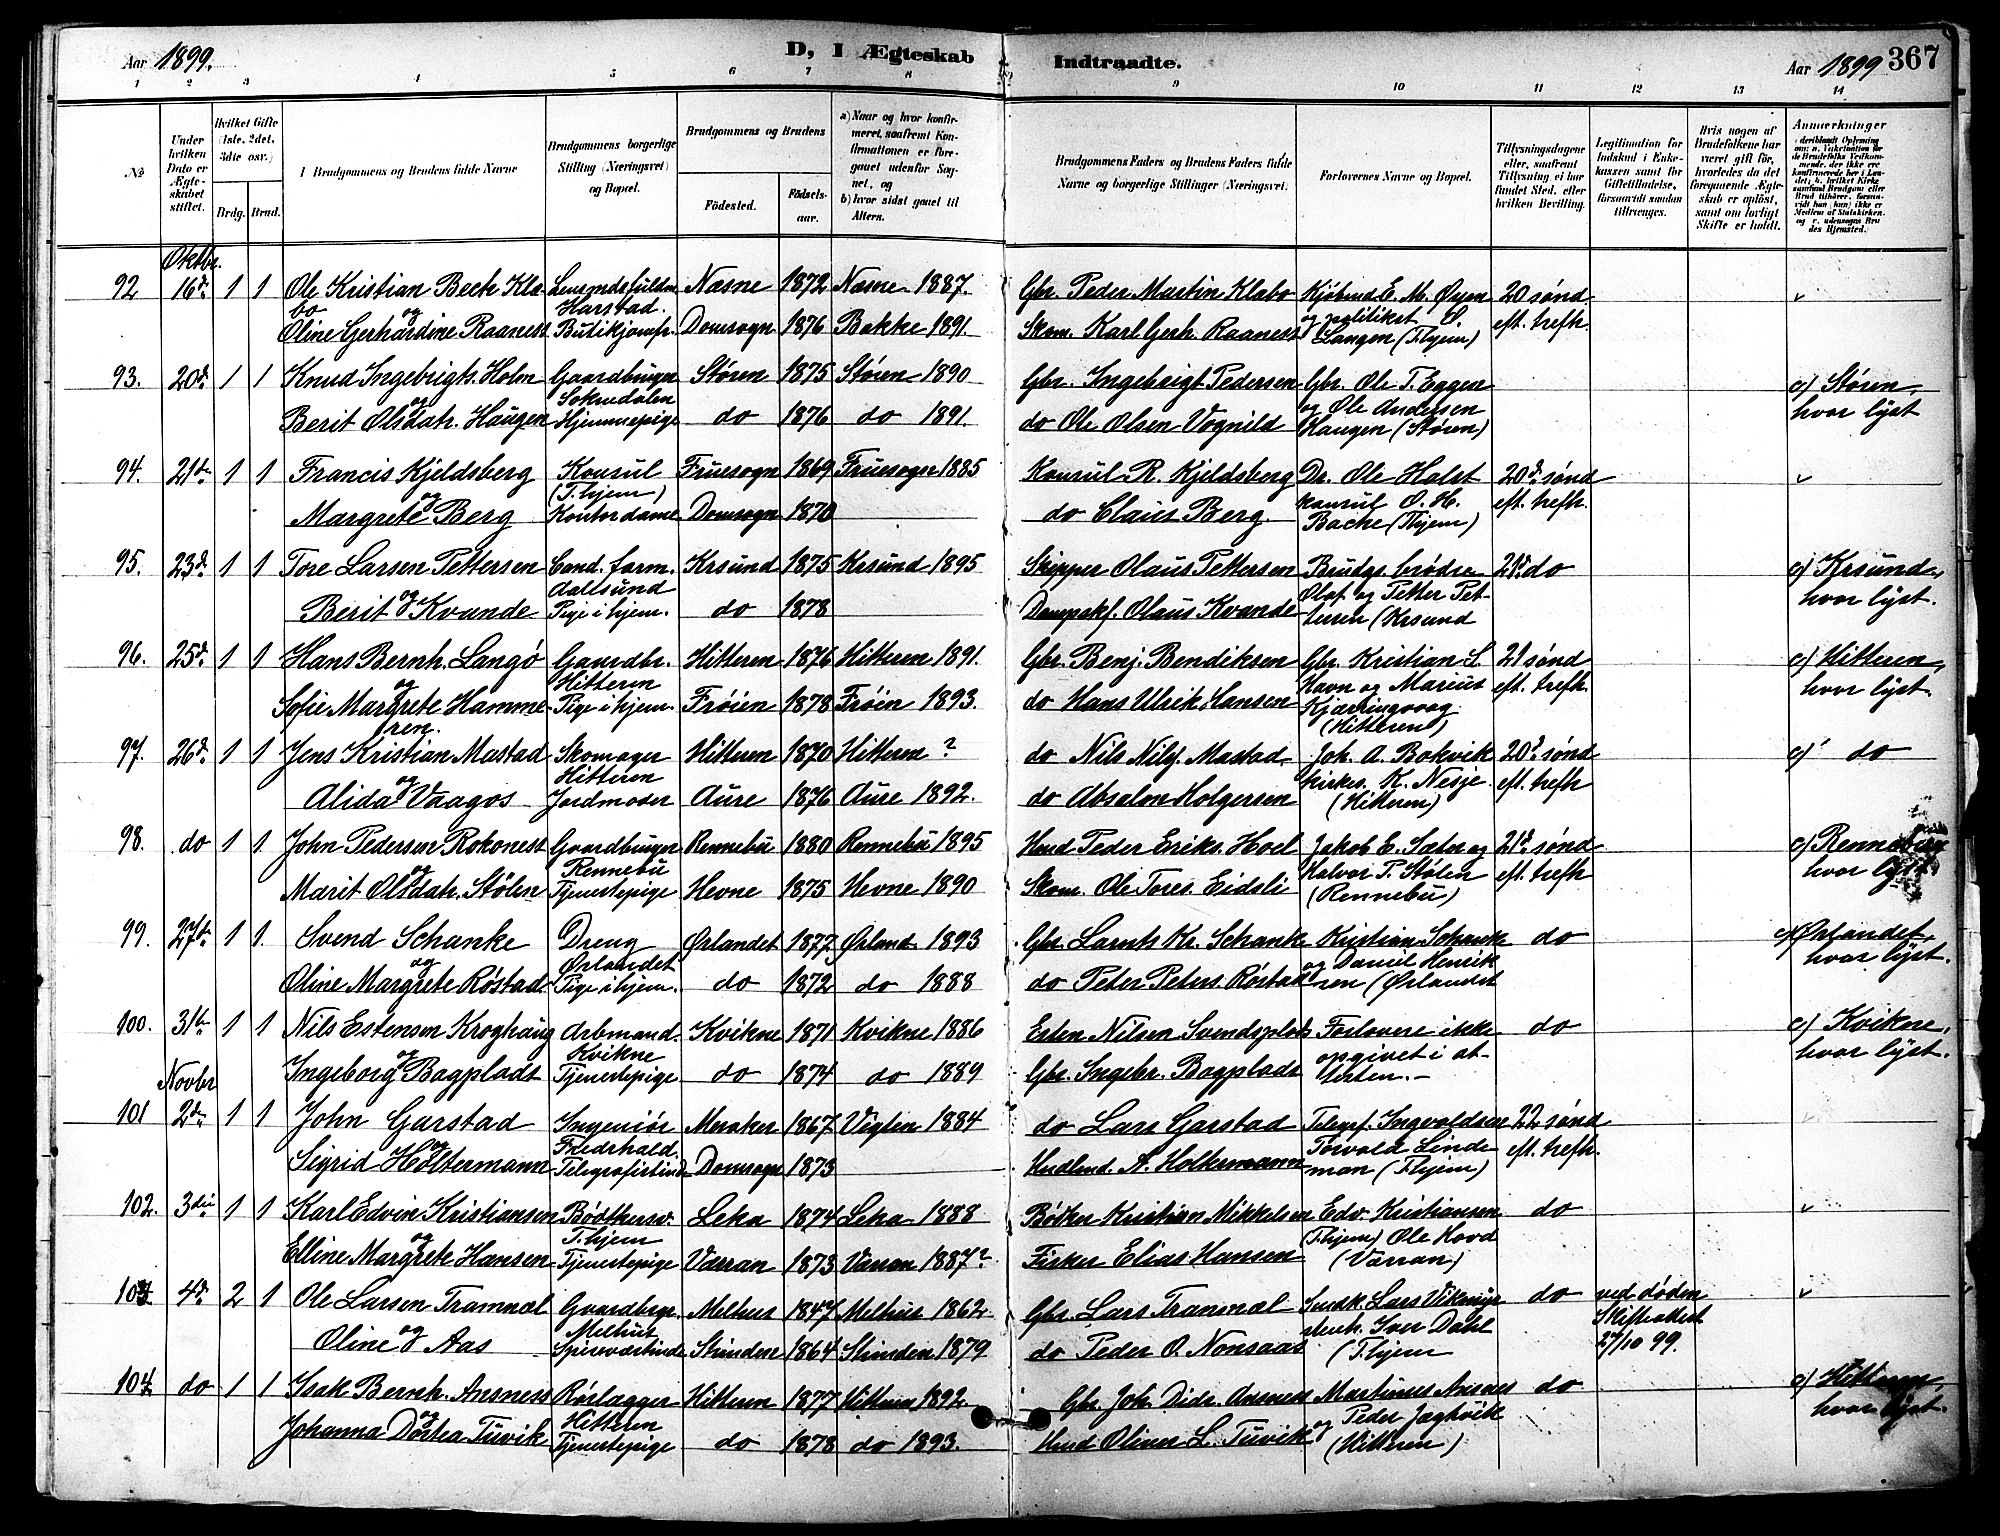 Aar 1899.
D, I Ægteskab Indtraadte.
Aar 1899 367
1 2 3 4 5 6 7 8 9 10 11 12 13 14
No
Under hvilken Dato er Ægteskabet stiftet.
Hvilket Gifte (1ste, 2det, 3die osv.)
Brdg. Brud.
Brudgommens og Brudens fulde Navne
Brudgommens borgerlige Stilling (Næringsvei) og Bopæl.
Brudgommens og Brudens
Fødested. Fødselsaar.
a) Naar og hvor konfirmeret, saafremt Konfirmationen er foregaaet udenfor Sognet, og
b) hvor sidst gaaet til Alters.
Brudgommens Faders og Brudens Faders fulde Navne og borgerlige Stillinger (Næringsvei.
Forlovernes Navne og Bopæl.
Tillysningsdagene eller, saafremt Tillysning ei har fundet Sted, efter hvilken Bevilling.
Legitimation for Indskud i Enkekassen samt for Giftetilladelse, forsaavidt saadan tiltrænges.
Hvis nogen af Brudefolkene har været gift før, hvorledes da det foregaaende Ægteskab er opløst, samt om lovligt Skifte er holdt.
Anmærkninger
Oktbr.
92 16de 1 1 Ole Kristian Bech Kla Lensmdsfuldm Næsne 1872 Næsne 1887. Gbr. Peder Martin Klabo Kjøbmd E. M. Øyen 20 sønd
bo og Harstad. og politibet. S. eft. trefh.
Oline Gerhardine Raaness Butikjomfr. Domsogn 1876 Bakke 1891. Skom. Karl Gerh. Raaness Langen (Thjem)
93. 20de 1 1 Knud Ingebrigts. Holm Gaardbruger Støren 1875 Støren 1890 Gbr. Ingebrigt Pedersen Gbr. Ole T. Eggen c) Støren,
og Soknedalen og Ole Andersen hvor lyst
Berit Olsdatr. Haugen Hjemmepige do 1876 do 1891. do Ole Olsen Vognild Haugen (Støren)
94. 21de 1 1 Francis Kjeldsberg Konsul Fruesogn 1869 Fruesogn 1885 Konsul R. Kjeldsberg Dr. Ole Holst 20de sønd
og (T.hjem) konsul O. H. eft. trefh.
Margrete Berg Kontordame Domsogn 1870 do Claus Berg. Bache (Thjem)
95. 23de 1 1 Tore Larsen Pettersen Cand. farm. Krsund 1875 Krsund 1895 Skipper Olaus Pettersen Brudgs. brødre 21de do c) Krsund,
og Aalesund Olaf og Petter Pet- hvor lyst.
Berit Kvande Pige i hjem. do 1878 Dampskf. Olaus Kvande tersen (Krsund
96. 25de 1 1 Hans Bernh. Langø Gaardbr. Hitteren 1876 Hitteren 1891. Gbr. Benj. Bendiksen Gbr. Kristian S. 21 sønd c) Hitteren,
og Hitteren Havn og Marius eft. trefh. hvor lyst.
Sofie Margrete Hamme Pige i hjem. Frøien 1878 Frøien 1893. do Hans Ulrik Hansen Kjærringvaag
ren. (Hitteren)
97. 26de 1 1 Jens Kristian Mastad Skomager Hitteren 1870 Hitteren ? do Nils Nilsj. Mastad Joh. A. Bakvik 20de sønd c) do
og Hitteren kirkes. K. Nesje eft. trefh
Alida Vaagos Jordmoder Aure 1876 Aure 1892. do Absalon Holgersen (Hitteren)
98. do 1 1 John Pedersen Rokoness Gaardbruger Rennebu 1880 Rennebu 1895 Husmd Peder Eriks. Hoel Jakob E. Sæter og 21de sønd c) Rennebu
og Rennebu Halvor P. Stølen eft. trefh hvor lyst.
Marit Olsdatr. Stølen Tjenestepige Hevne 1875 Hevne 1890 Skom. Ole Tores. Eidsli (Rennebu)
99. 27de 1 1. Svend Schanke Dreng Ørlandet 1877 Ørland 1893 Gbr Larnts Kr. Schanke Kristian Schanke do c) Ørlandet,
og Ørlandet og Daniel Henrik hvor lyst.
Oline Margrete Røstad Pige i hjem. do 1872 do 1888 do Peter Peters. Røstad sen (Ørlandet
100. 31te 1 1 Nils Estensen Kroghaug Arbmand. Kvikne 1871 Kvikne 1886 Esten Nilsen Svendsplads Forlovere ikke do c) Kvikne,
og Kvikne opgivet i at- hvor lyst.
Ingeborg Bagplads Tjenestepige do 1874 do 1889 Gbr. Ingebr. Bagplads testen.
Novbr
101 2den 1 1 John Garstad Ingeniør Meraker 1867 Vigten 1884 do Lars Garstad Telegf. Ingvaldsen 22 sønd
og Fredrhald. Torvald Linde eft. trefh.
Sigrid Holtermann Telegrafistinde Domsogn 1873 Hndlend. A. Holtermann man (Thjem)
102. 3die 1 1 Karl Edvin Kristiansen Bødkersv. Leka 1874 Leka 1888 Bødker Kristian Mikkelsen Edv. Kristiansen do
og T.hjem (T.hjem) Ole Hovd
Elline Margrete Hansen Tjenestepige Værran 1873 Værran 1887? Fisker Elias Hansen (Værran)
103 4de 2 1 Ole Larsen Tranmæl Gaardbrger Melhus 1847 Melhus 1862 Gbr. Lars Tranmæl Smedk. Lars do ved døden
og Melhus Iver Dahl Skifteattest
Oline Aas Strinden 1864 Strinden 1879 do Peder O. Nonsaas (T.hjem 27/10 99.
104 do 1 1 Isak Bernh. Ansness Rørlægger Hitteren 1877 Hitteren 1892 Gbr Joh. Didr. Ansness Martinus Ansnes do c) Hitteren,
og Hitteren og Peder Jægtvik hvor lyst.
Johanna Dortea Tuvik Tjenestepige do 1878 do 1893. Husmd Oliver L. Tuvik (Hitteren)